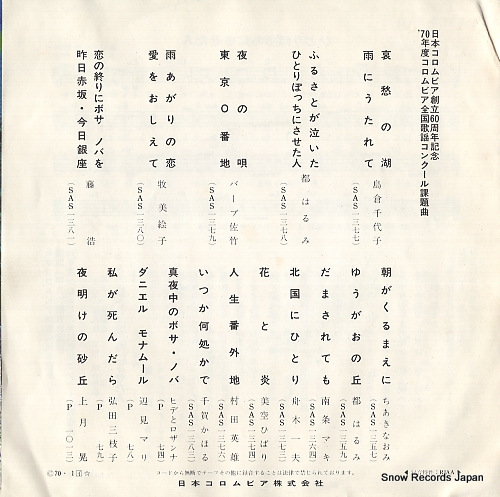 日本コロムビア創立60周年記念
'70年度コロムビア全国歌謡コンクール課題曲
哀愁の湖
雨にうたれて
島倉千代子
(SAS一三七七)
ふるさとが泣いた
ひとりぼっちにさせた人
都はるみ
(SAS一三七八)
夜の唄
東京０番地
バーブ佐竹
(SAS一三七九)
雨あがりの恋
愛をおしえて
牧美絵子
(SAS一三八〇)
恋の終りにボサノバを
昨日赤坂・今日銀座
藤浩
(SAS一三八一)
朝がくるまえに
ちあきなおみ
ゆうがおの丘
都はるみ
(SAS一三五九)
だまされても
南条マキ
(SAS一三六四)
北国にひとり
舟木一夫
花と炎
美空ひばり
(SAS一三七四)
人生番外地
村田英雄
いつか何処かで
千賀かほる
(SAS一三八三)
真夜中のボサ・ノバ
ヒデとロザンナ
(P 七四)
ダニエル モナムール
辺見マリ
(P 七八)
私が死んだら
弘田三枝子
(P 七九)
夜明けの砂丘
上月晃
(P 一〇三)
©70・1
レコードから無断でテープその他に録音することは法律で禁じられております。
日本コロムビア株式会社
Snow Records Japan